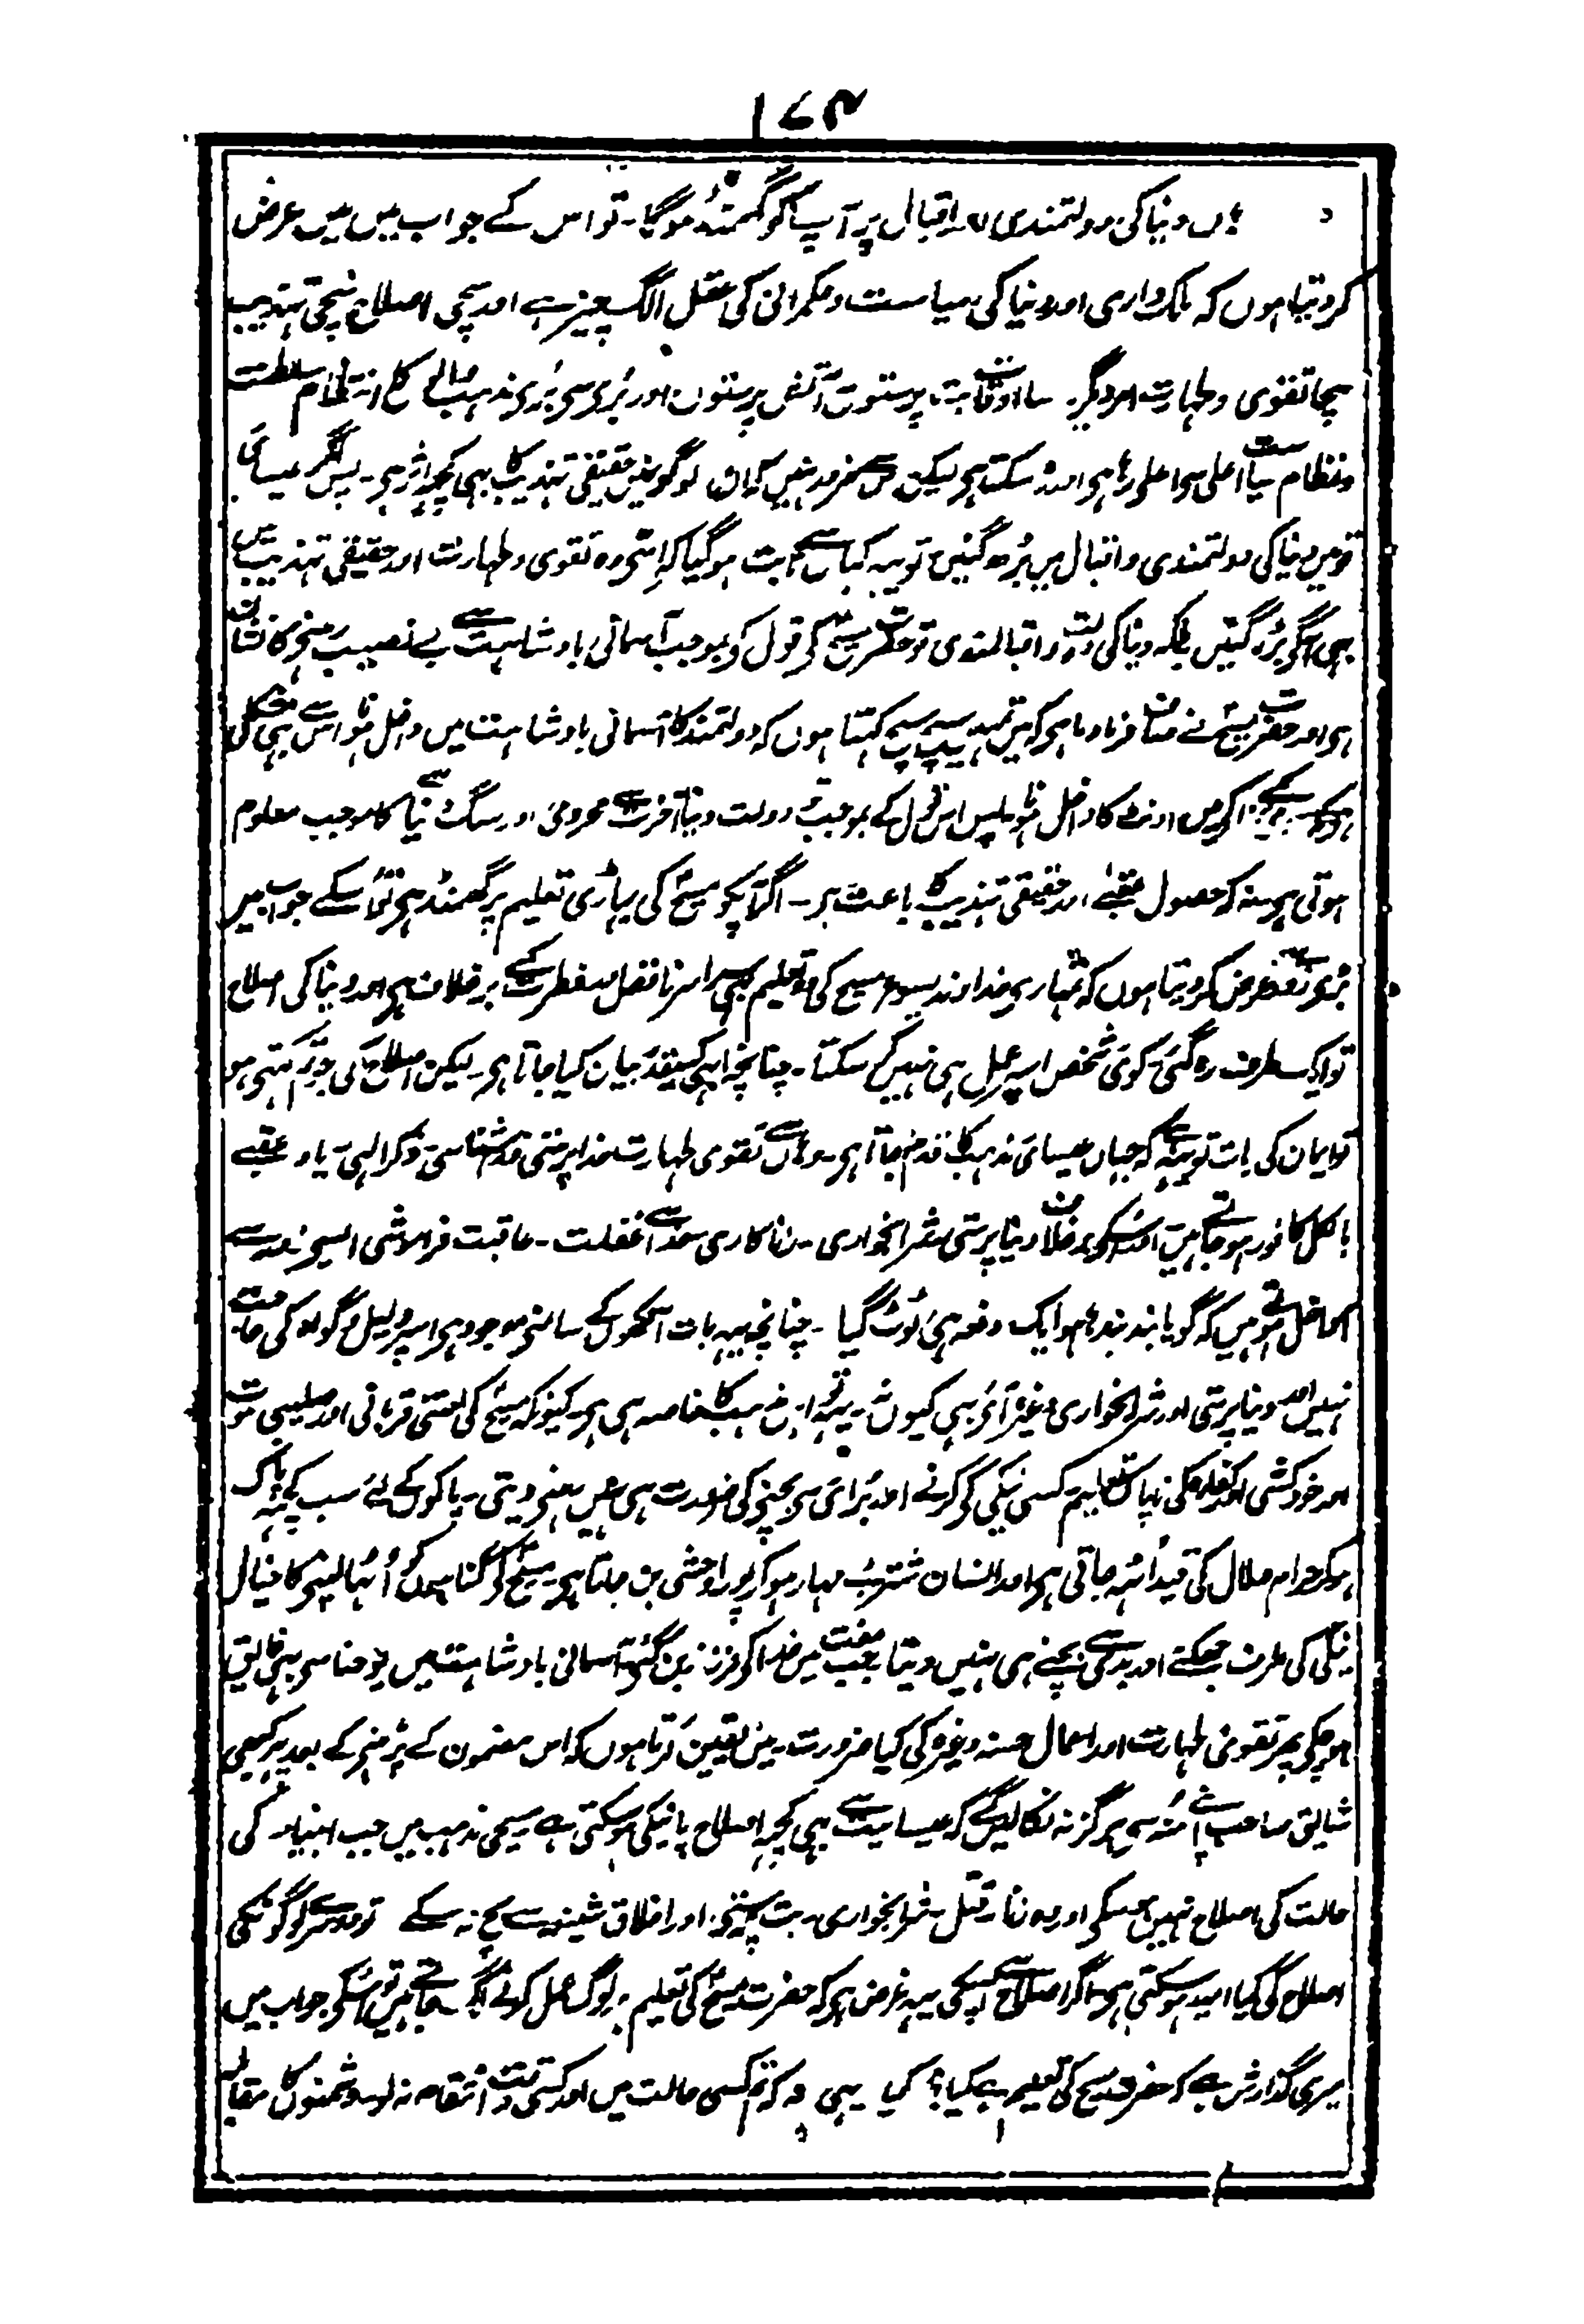 ۱۷۴
ہاں دنیا کی دولتمندی اور اقبال پر آپ کو گھمنڈ ہوگا۔ تو اس کے جواب میں میں عرض
کر دیتا ہوں کہ ملک داری اور دنیا کی سیاست و حکمرانی کی عقل الگ چیز ہے اور سچی اصلاح سچی تہذیب
سچا تقوی و طہارت امر دیگر۔ بسا اوقات بت پرستوں آتش پرستوں اور بری سی بری مذہب والے کا انتظام سلطنت
و نظام سیاست اعلی سی اعلی رہا ہی اور رہ سکتا ہی لیکن ضرور نہیں کہ ان لوگونمیں حقیقی تہذیب کا بہی کچہہ اثر ہی۔ پس اگر عیسائی
قومیں دنیا کی دولتمندی و اقبال میں بڑھ گئیں تو یہہ کہاں سے ثابت ہوگیا کہ وہ تقوی و طہارت اور حقیقی تہذیب میں
بہی آگے بڑھ گئیں بلکہ دنیا کی دولت و اقبالمندی تو حضرت مسیح کی قول کی بموجب آسمانی بادشاہت سے بے نصیب رہنے کا نشان
ہی اور حضرت مسیح نے صاف فرما دیا ہی کہ میں تمہیں سچ سچ کہتا ہوں کہ دولتمند کا آسمانی بادشاہت میں داخل ہونا اس سے بہی مشکل
ہی کہ سوئی کے ناکے میں اونٹ کا داخل ہونا پس اس قول کے بموجب دولت دنیا آخرت سے محرومی اور کا موجب معلوم
ہوتی ہی نہ کہ حصول عقبے اور حقیقی تہذیب کا باعث ہر۔ اگر آپکو مسیح کی پہاڑی تعلیم پر گھمنڈ ہی تو اسکے جواب میں
عرض کر دیتا ہوں کہ تمہاری خداوند یسوع مسیح کی وہ تعلیم بہی سراسر ناقص اور فطرت کے برخلاف ہی اور دنیا کی اصلاح
تو ایک طرف رہ گئی کوئی شخص اسپر عمل ہی نہیں کر سکتا۔ چنانچہ ابہی کسیقدر بیان کیا جاتا ہی۔ لیکن اصلاح کی جو تم کہتی ہو
تو ایمان کی بات تو یہہ ہے کہ جہاں عیسائی مذہب کا قدم جاتا ہی۔ وہاں سے تقوی طہارت خدا پرستی شناسی ذکر الہی یاد عقبے
بالکل کافور ہو جاتے ہیں اور اسکی برخلاف دنیا پرستی شرابخواری۔ زناکاری خدا سے غفلت۔ عاقبت فراموشی ایسی زور سے
داخل ہوتے ہیں کہ گویا بند بندہا ہوا ایک دفعہ ہی ٹوٹ گیا۔ چنانچہ یہہ بات آنکھوں کے سامنے موجود ہی اسپر دلیل و گواہ کی حاجت
نہیں اور دنیا پرستی اور شرابخواری وغیرہ آئے بہی کیوں نہ۔ یہہ تو اس مذہب کا خاصہ ہی ہی۔ کیونکہ مسیح کی لعنتی قربانی اور صلیبی موت
اور خودکشی اور کفارہ کی ناپاک تعلیم کسی نیکی کو کرنے اور برائی سی بچنے کی ضرورت ہی نہیں رہنے دیتی۔ پاکوں کے لئے سب کچہہ پاک
ہو کر حرام حلال کی قید اٹہہ جاتی ہی اور انسان شتر بے مہار ہو کر پورا وحشی بن جاتا ہی۔ مسیح کو گناہوں کو اٹہا لینے کا خیال
نیکی کی طرف جھکنے اور بدی سے بچنے ہی نہیں دیتا جب مفت میں خدا کی فرزند بن گئے تو آسمانی بادشاہت میں یوحنا سی بہی فایق
ہو چکے پہر تقوی طہارت اور اعمال حسنہ وغیرہ کی کیا ضرورت۔ میں یقین کرتا ہوں کہ اس مضمون کے پڑہنے کے بعد پہر کبھی
شایق صاحب اپنے منہ سی ہرگز نہ نکالیں گے کہ عیسائیت سے بہی کچہہ اصلاح یا نیکی ہو سکتی ہے مسیحی مذہب میں جب انبیاء کی
حالت کی اصلاح نہیں ہو سکی اور وہ زنا۔ قتل۔ شرابخواری۔ بت پرستی۔ اور اخلاق شنیعہ سے بچ نہ سکے تو دوسرے لوگونکی
اصلاح کی کیا امید ہو سکتی ہی۔ اگر اصلاح سے آپکی یہہ غرض ہی کہ حضرت مسیح کی تعلیم پر لوگ عمل کرنے لگ جاتے ہیں تو اسکی جواب میں
میری گذارش ہے کہ حضرت مسیح کی تعلیم ہے کیا؟ کیا یہی نہ کہ تم کسی حالت میں اور کسی وقت انتقام نہ لو۔ دشمنوں کا مقابلہ